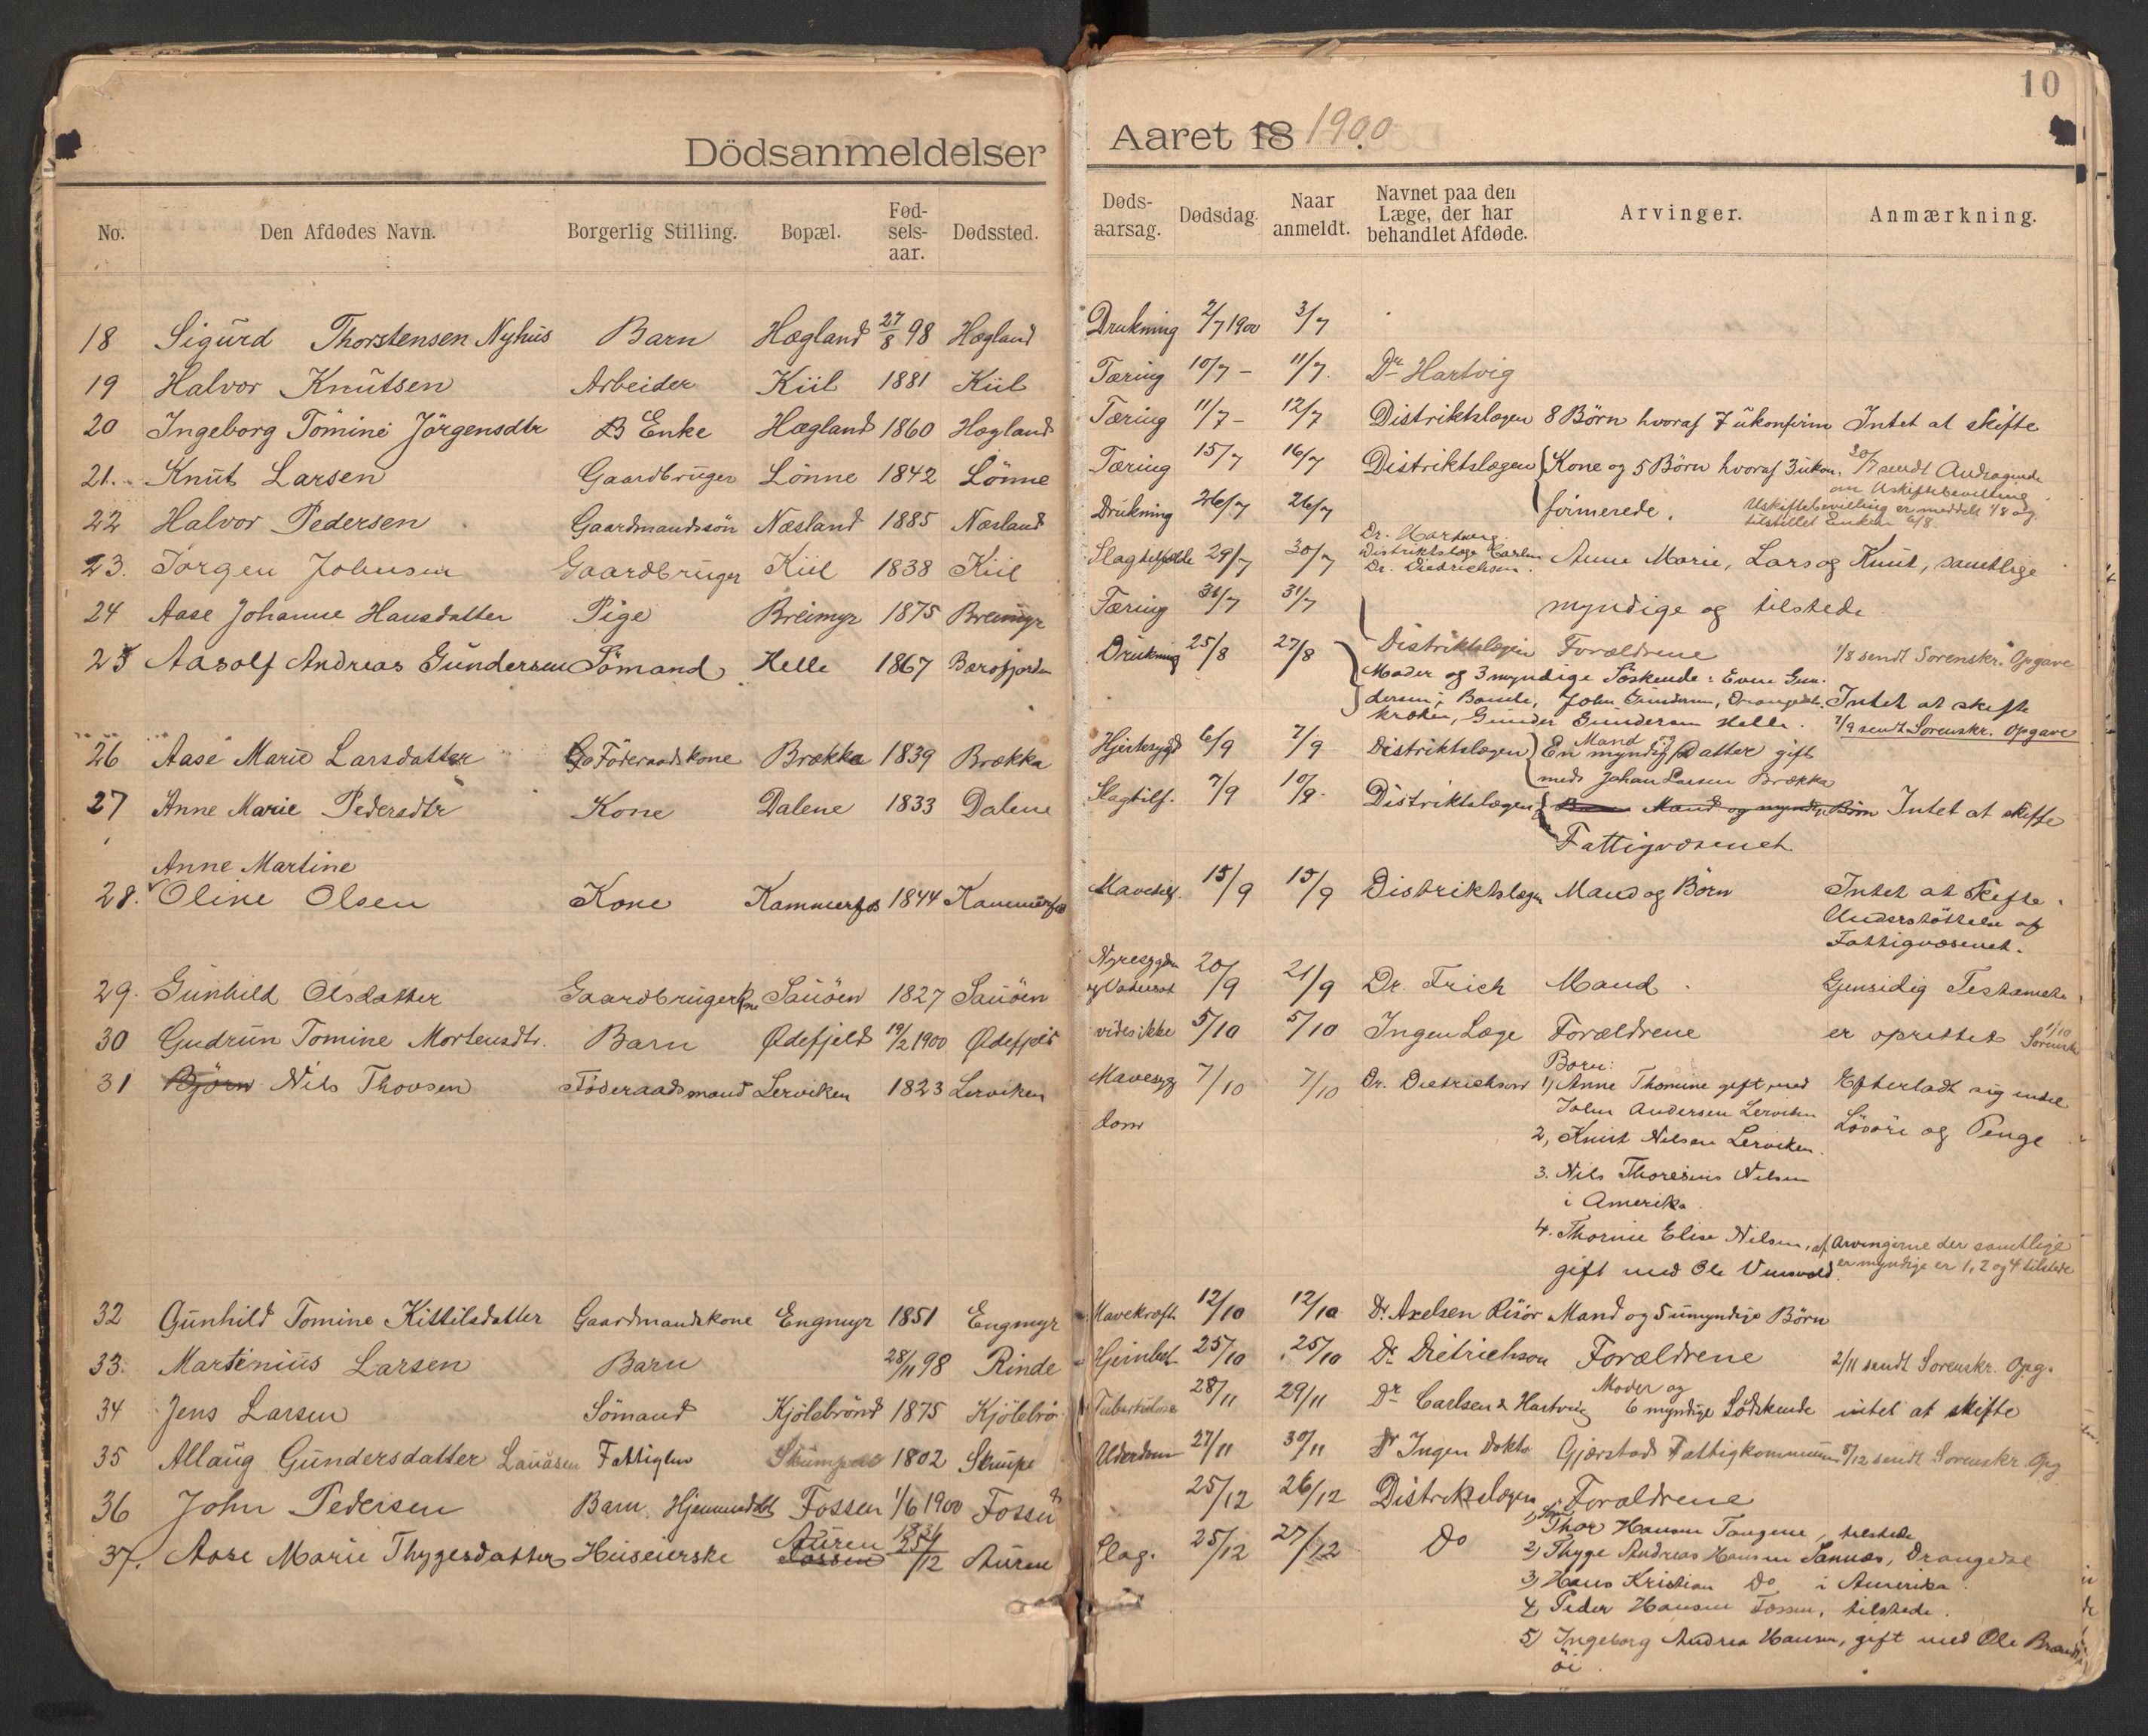 10
Dödsanmeldelser Aaret 18 1900.
No. Den Afdødes Navn. Borgerlig Stilling. Bopæl. Fød-sels-aar. Dødssted. Døds-aarsag. Dødsdag. Naar anmeldt. Navnet paa den Læge, der har behandlet Afdøde. Arvinger. Anmærkning.
18 Sigurd Thorstensen Nyhus Barn Hægland 27/8 98 Hægland Drukning 2/7 1900 3/7
19 Halvor Knutsen Arbeider Kiil 1881 Kiil Tæring 10/7 - 11/7. Dr Hartvig
20 Ingeborg Tomine Jörgensdtr Enke Hægland 1860 Hægland Tæring 11/7 - 12/7 Distriktslægen 8 Börn hvoraf 7 ukonfirm Intet at skifte
21. Knut Larsen Gaardbruger Lönne 1842 Lönne Tæring 15/7 16/7 Distriktslægen Kone og 5 Börn hvoraf 3 ukon- 20/7 sendt Andragende
om Uskiftebevilling.
22 Halvor Pedersen Gaardmandssön Næsland 1885 Næsland Drukning 26/7 26/7 firmerede. Uskiftebevilling er meddelt 1/8 og
tilstillet Enken 6/8.
23. Jorgen Johnsen Gaardbruger Kiil 1838 Kiil Slagtilfælde 29/7 30/7 Dr. Hartvig
Distriktslæge Carlsen
Dr. Dietrichson. Anne Marie, Lars og Knut, samtlige
24 Aase Johanne Hansdatter Pige Breimyr 1875 Breimyr Tæring 31/7 31/7 myndige og tilstede.
25 Aasolf Andreas Gundersen Sömand Helle 1867 Barsfjorden Drukning 25/8 27/8 Distriktslægen Forældrene 1/8 sendt Sorenskr. Opgave
Moder og 3 myndige Söskende: Even Gun-
dersen, Bamle, John Gundersen, Drangedal, Intet at skifte
Gunder Gundersen Helle. 7/9 sendt Sorenskr. Opgave
26 Aase Marie Larsdatter Föderaadskone Brækka 1839 Brækka Hjertesygd 6/9 7/9 Distriktslægen Mand og
En myndig Datter gift
med Johan Larsen Brækka
27 Anne Marie Pedersdtr Kone Dalene 1833 Dalene Slagtilf. 7/9 10/9 Distriktslægen Mand og myndige Börn Intet at skifte
Fattigvæsenet
Anne Martine
28. Oline Olsen Kone Kammerfos 1844 Kammerfos Mavetilf. 15/9 15/9 Distriktslægen Mand og Börn Intet at skifte.
Understöttelse af
Fattigvæsenet.
29. Gunhild Olsdatter Gaardbrugerkone Sauöen 1827 Sauöen Nyresygdom
og Vatersot 20/9 21/9 Dr. Frich Mand. Gjensidig Testamente
30 Gudrun Tomine Mortensdtr. Barn Ødefjeld 19/2 1900 Ødefjeld vides ikke 5/10 5/10 Ingen Læge Forældrene er oprettet 1/10 Sorenskr
31 Björn Nils Thovsen Föderaadsmand Lerviken 1823 Lerviken Mavesyg
dom 7/10 7/10 Dr. Dietrichson Born:
1) Anne Thomine gift med Efterladt sig endel
John Andersen Lerviken
2, Knut Nilsen Lerviken. Lösöre og Penge
3. Nils Thoresius Nilsen
i Amerika.
4. Thorine Elise Nilsen, af Arvingerne der samtlige
gift med Ole er myndige er 1, 2 og 4 tilstede
32 Gunhild Tomine Kittilsdatter Gaardmandskone Engmyr 1851 Engmyr Mavekræft 12/10 12/10 Dr. Axelsen Risör Mand og 5 umyndige Börn
33. Martinius Larsen Barn 28/11 98 Rinde 25/10 25/10 Dr Dietrichson Forældrene 2/11 sendt Sorenskr. Opg.
34 Jens Larsen Sömand Kjölebrönd 1875 Kjölebrö Tuberkulose 28/11 29/11 Dr Carlsen & Hartvig Moder og
6 myndige Södskende intet at skifte
35 Allaug Gundersdatter Lauasen Fattiglem 1802 Skumpe Alderdom 27/11 30/11 Ingen Doktor Gjærstad Fattigkommune 8/12 sendt Sorenskr. Opg
36 John Pedersen Barn. Fossen 1/6 1900 Fossen 25/12 26/12 Distriktslægen Forældrene
37. Aase Marie Thygesdatter Huseierske Auren
Fossen 1834
/12 Auren Slag. 25/12 27/12 Do 1) Thor Hansen Tangene, tilstede
2) Thyge Andreas Hansen Sannes, Drangedal
3) Hans Kristian Do i Amerika.
4, Peder Hansen Fossen, tilstede.
5) Ingeborg Andrea Hansen, gift med Ole
öi.